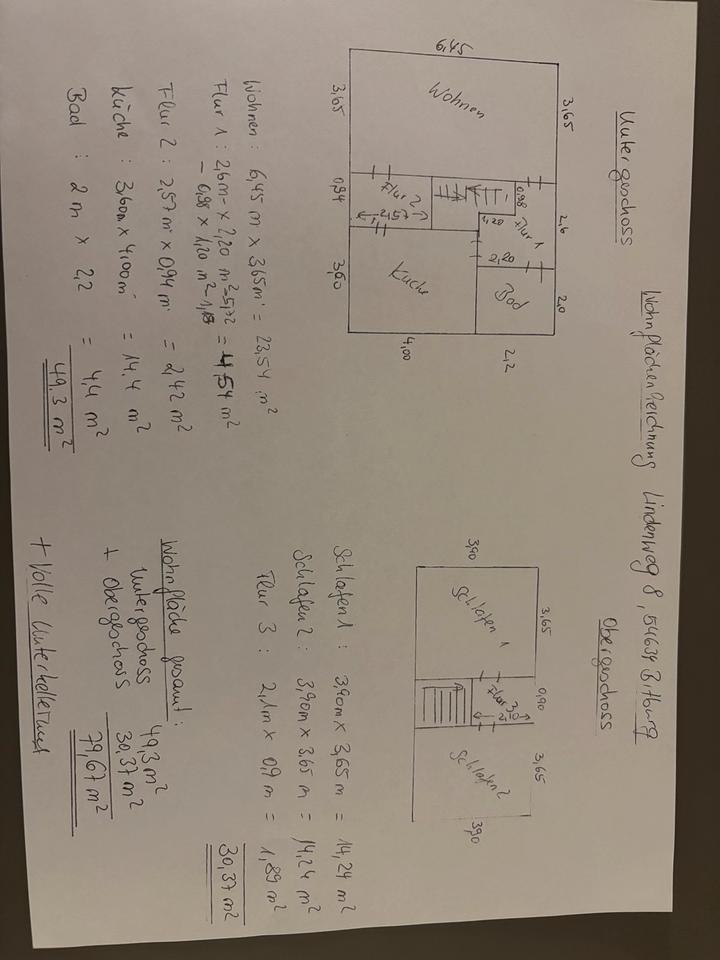 Wohnflächenberechnung Lindenweg 8, 54634 Bitburg
Untergeschoss
3,65
2,6
2,0
6,45
Wohnen
0,98
Flur 1
1,20
2,20
Bad
2,2
Flur 2
Küche
4,00
3,65
0,94
3,60
Wohnen : 6,45 m x 3,65 m = 23,54 m²
Flur 1 : 2,6m x 2,20 m² = 5,72
- 0,98 x 1,20 m² = 4,54 m²
Flur 2 : 2,57 m x 0,94 m = 2,42 m²
Küche : 3,60m x 4,00m = 14,4 m²
Bad : 2 m x 2,2 = 4,4 m²
49,3 m²
Obergeschoss
3,65
0,90
3,65
3,90
Schlafen 1
Flur 3
Schlafen 2
3,90
Schlafen 1 : 3,90m x 3,65 m = 14,24 m²
Schlafen 2 : 3,90m x 3.65 m = 14,24 m²
Flur 3 : 2,1m x 0,9 m = 1,89 m²
30,37 m²
Wohnfläche gesamt :
Untergeschoss 49,3 m²
+ Obergeschoss 30,37 m²
79,67 m²
+ Volle Unterkellerung